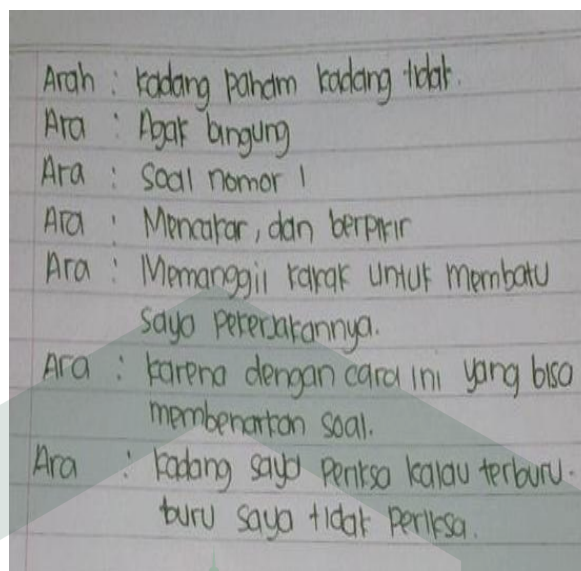 Arah : kadang paham kadang tidak.
Ara : Agak bingung
Ara : Soal nomor 1
Ara : Mencakar, dan berpikir
Ara : Memanggil kakak untuk membatu
saya pekerjakannya.
Ara : karena dengan cara ini yang bisa
membenarkan soal.
Ara : kadang saya periksa kalau terburu-
buru saya tidak periksa.